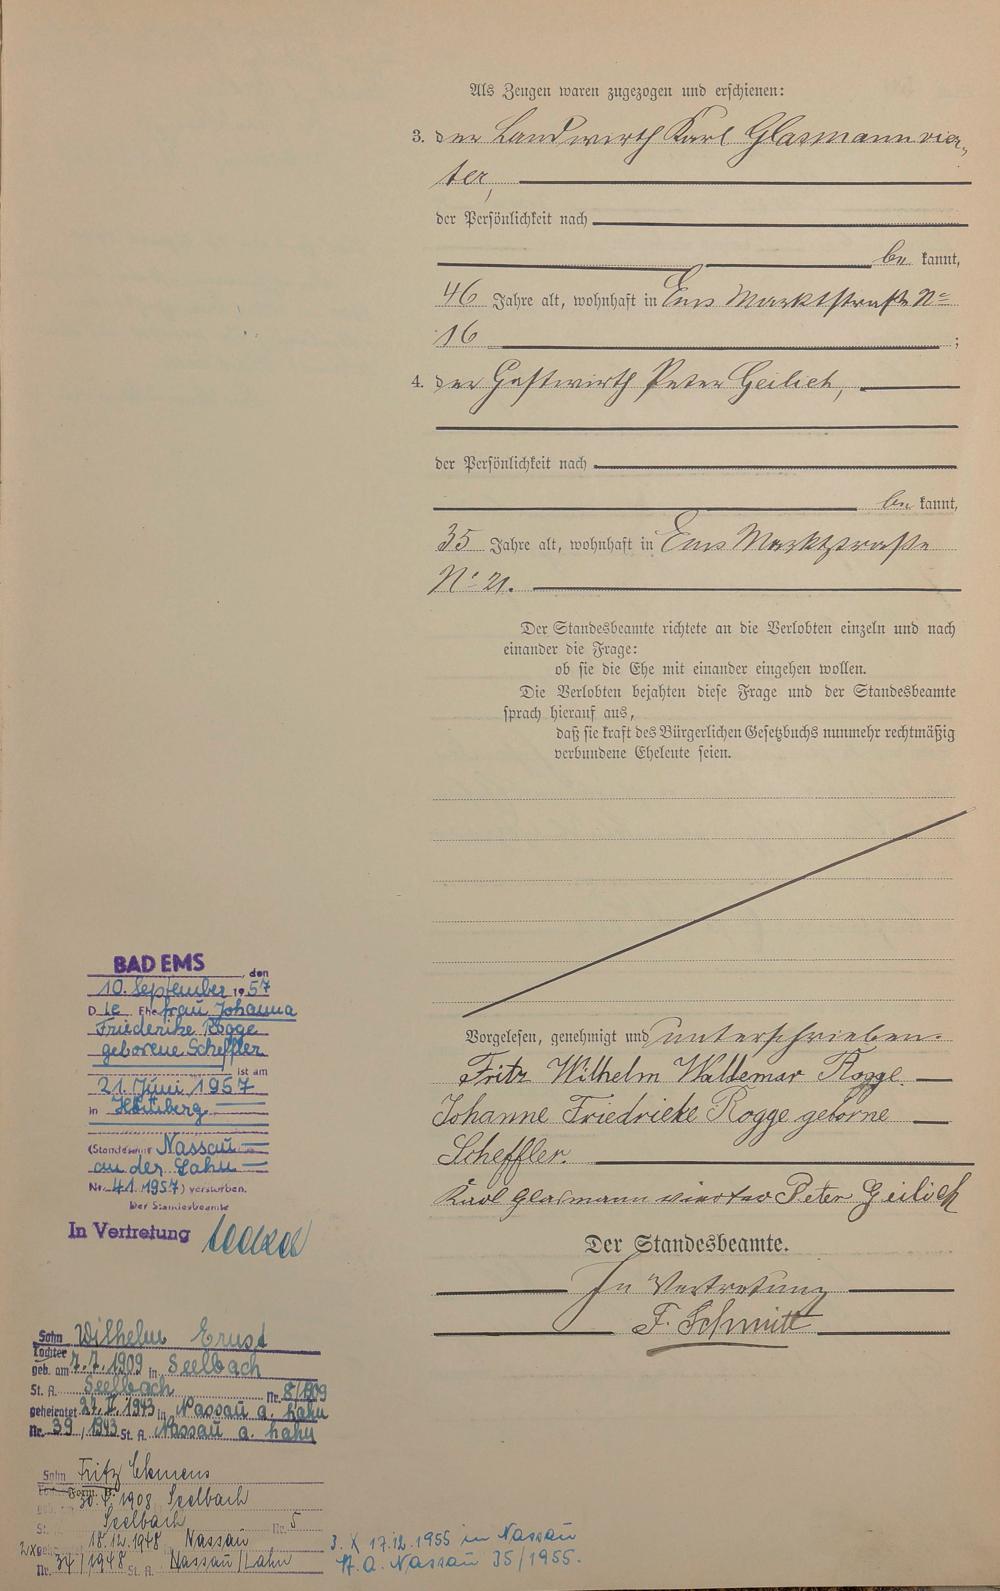 Als Zeugen waren zugezogen und erschienen:
3. der Landwirth Karl Glasmann vier-
ter,
der Persönlichkeit nach
be kannt,
46 Jahre alt, wohnhaft in Ems Marktstraße No
16 ;
4. der Gastwirth Peter Geilich,
der Persönlichkeit nach
be kannt,
35 Jahre alt, wohnhaft in Ems Marktstraße
No 21.
Der Standesbeamte richtete an die Verlobten einzeln und nach
einander die Frage:
ob sie die Ehe mit einander eingehen wollen.
Die Verlobten bejahten diese Frage und der Standesbeamte
sprach hierauf aus,
daß sie kraft des Bürgerlichen Gesetzbuchs nunmehr rechtmäßig
verbundene Eheleute seien.
Vorgelesen, genehmigt und unterschrieben.
Fritz Wilhelm Waldemar Rogge.
Johanne Friedrieke Rogge geborne
Scheffler.
Karl Glasmann vierter Peter Geilich
Der Standesbeamte.
In Vertretung
F. Schmitt
BAD EMS, den
10. September 1957
Die Ehefrau Johanna
Friederike Rogge
geborene Scheffler
ist am
21. Juni 1957
in Hömberg
(Standesamt Nassau
an der Lahn
Nr. 41.1957) verstorben.
Der Standesbeamte
In Vertretung
Sohn Wilhelm Ernst
Tochter
geb. am 7.7.1909 in Seelbach
St. A. Seelbach Nr. 8/1909
geheiratet 27.V.1943 in Nassau a. Lahn
Nr. 39/1943 St. A. Nassau a. Lahn
Sohn Fritz Clemens
1908 Seelbach
St. Seelbach Nr. 5
2x 18.12.1948 Nassau
Nr. 37/1948 St. A. Nassau/Lahn
3. X 17.12.1955 in Nassau
St. A. Nassau 35/1955.